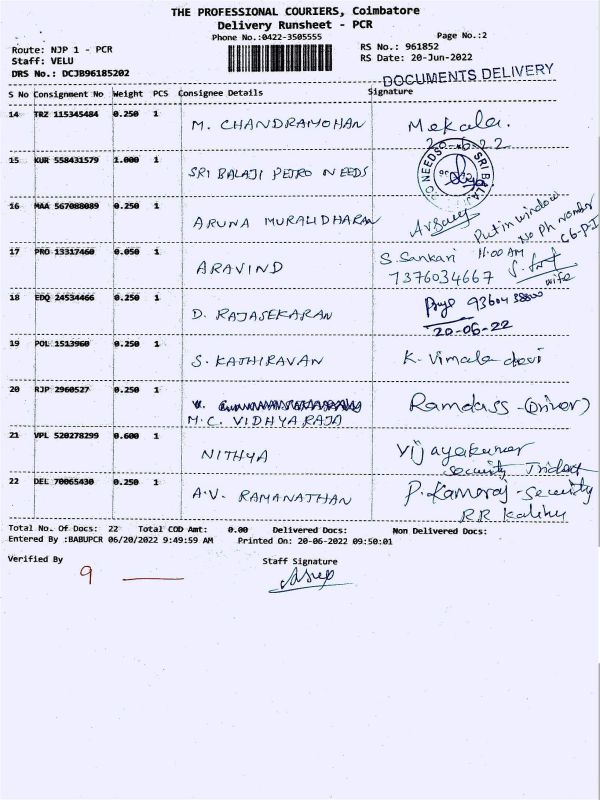 THE PROFESSIONAL COURIERS, Coimbatore
Delivery Runsheet - PCR
Phone No.:0422-3505555
Page No.:2
Route: NJP 1 - PCR
Staff: VELU
DRS No.: DCJB96185202
RS No.: 961852
RS Date: 20-Jun-2022
DOCUMENTS DELIVERY
S No Consignment No Weight PCS Consignee Details Signature
14 TRZ 115345484 0.250 1 M. CHANDRAMOHAN Mekala.
20-6-22
15 KUR 558431579 1.000 1 SRI BALAJI PETRO NEEDS
NEEDS SRI BALA
16 MAA 567088089 0.250 1 ARUNA MURALIDHARAN
Put in window
No Ph number
11:00 AM C6-P-I
17 PRO 13317460 0.050 1 ARAVIND S. Sankari
7376034667
wife
18 EDQ 24534466 0.250 1 D. RAJASEKARAN
20-06-22
19 POL 1513960 0.250 1 S. KATHIRAVAN K. Vimala devi
20 RJP 2960527 0.250 1 M.C. VIDHYARAJA Ramdass - (Driver)
21 VPL 520278299 0.600 1 NITHYA Vijayakumar
Security Trident
22 DEL 70065430 0.250 1 A.V. RAMANATHAN P. Kamaraj - Security
RR
Total No. Of Docs: 22 Total COD Amt: 0.00 Delivered Docs: Non Delivered Docs:
Entered By :BABUPCR 06/20/2022 9:49:59 AM Printed On: 20-06-2022 09:50:01
Verified By Staff Signature
9